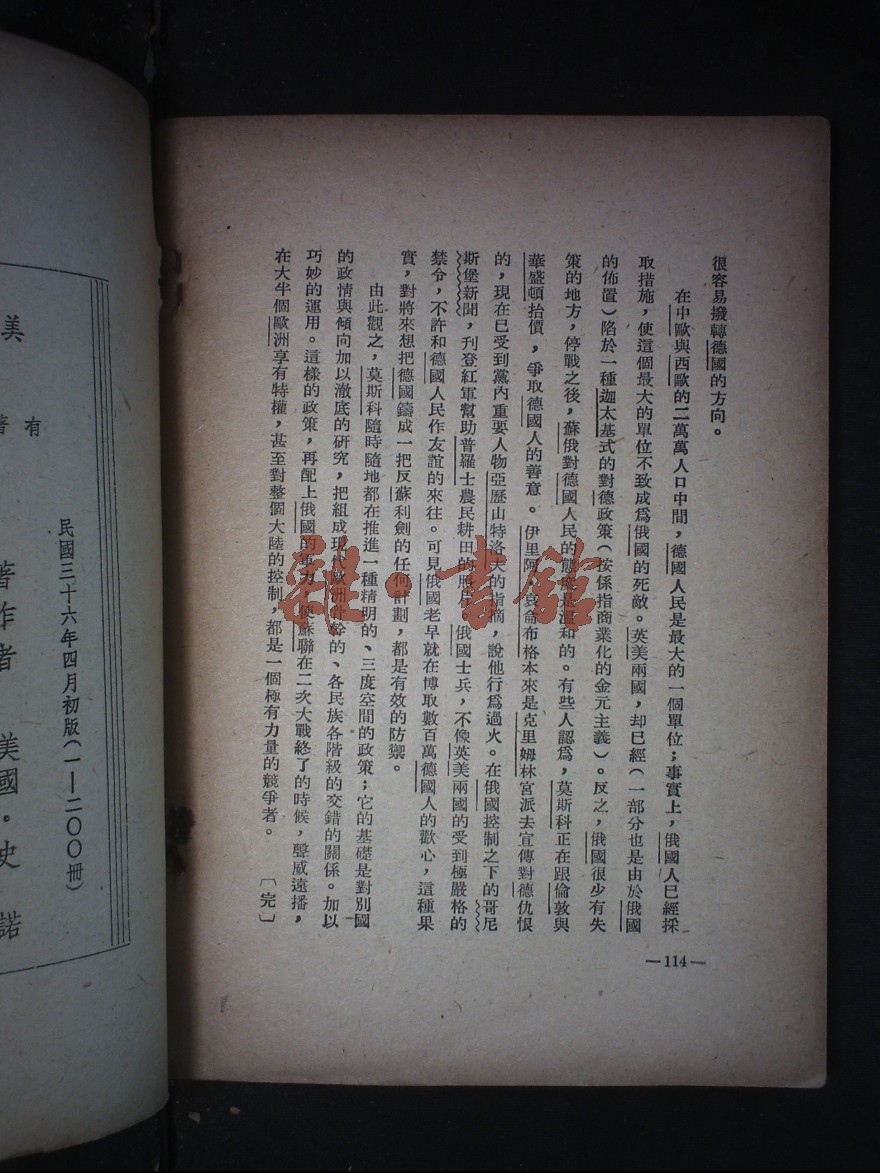 很容易撥轉德國的方向。
在中歐與西歐的二萬萬人口中間，德國人民是最大的一個單位；事實上，俄國人已經採
取措施，使這個最大的單位不致成爲俄國的死敵。英美兩國，却已經（一部分也是由於俄國
的佈置）陷於一種迦太基式的對德政策（按係指商業化的金元主義）。反之，俄國很少有失
策的地方，停戰之後，蘇俄對德國人民的態度是溫和的。有些人認爲，莫斯科正在跟倫敦與
華盛頓抬價，爭取德國人的善意。伊里阿・袁侖布格本來是克里姆林宮派去宣傳對德仇恨
的，現在已受到黨內重要人物亞歷山特洛夫的指摘，說他行爲過火。在俄國控制之下的哥尼
斯堡新聞，刊登紅軍幫助普羅士農民耕田的照片。俄國士兵，不像英美兩國的受到極嚴格的
禁令，不許和德國人民作友誼的來往。可見俄國老早就在博取數百萬德國人的歡心，這種果
實，對將來想把德國鑄成一把反蘇利劍的任何計劃，都是有效的防禦。
由此觀之，莫斯科隨時隨地都在推進一種精明的、三度空間的政策；它的基礎是對別國
的政情與傾向加以澈底的研究，把組成現代歐洲骨幹的、各民族各階級的交錯的關係。加以
巧妙的運用。這樣的政策，再配上俄國的軍力，使蘇聯在二次大戰終了的時候，聲威遠播，
在大半個歐洲享有特權，甚至對整個大陸的控制，都是一個極有力量的競爭者。〔完〕
—114—
雜·書館
有著
美
民國三十六年四月初版（一—二〇〇冊）
著作者 美國・史諾